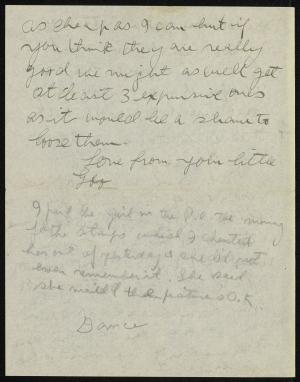 as cheap as I can but if
you think they are really
good we might as well get
at least 3 expensive ones
as it would be a shame to
loose them.
Love from your little

I paid the girl in the P.O. the money
for the stamps which I cheated
her out of yesterday & she did not
even remember it. She said
she mailed the pictures O.K.